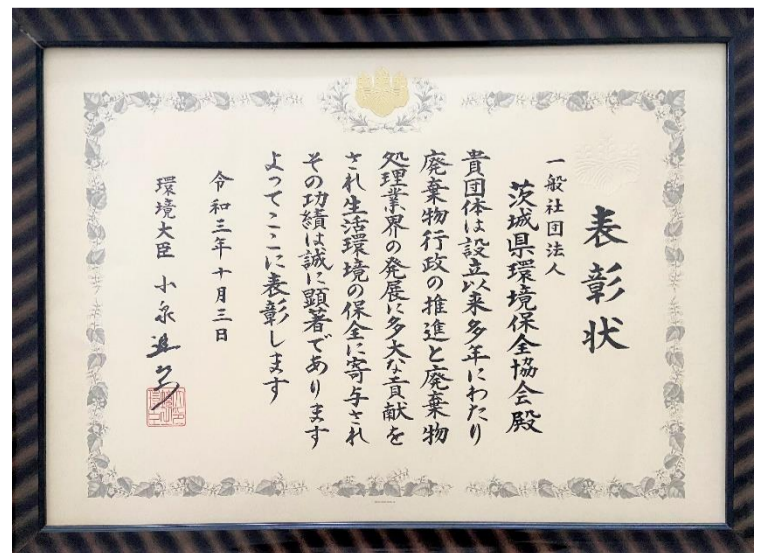 表彰状
一般社団法人
茨城県環境保全協会殿
貴団体は設立以来多年にわたり
廃棄物行政の推進と廃棄物
処理業界の発展に多大な貢献を
され生活環境の保全に寄与され
その功績は誠に顕著であります
よってここに表彰します
令和三年十月三日
環境大臣 小泉進次郎